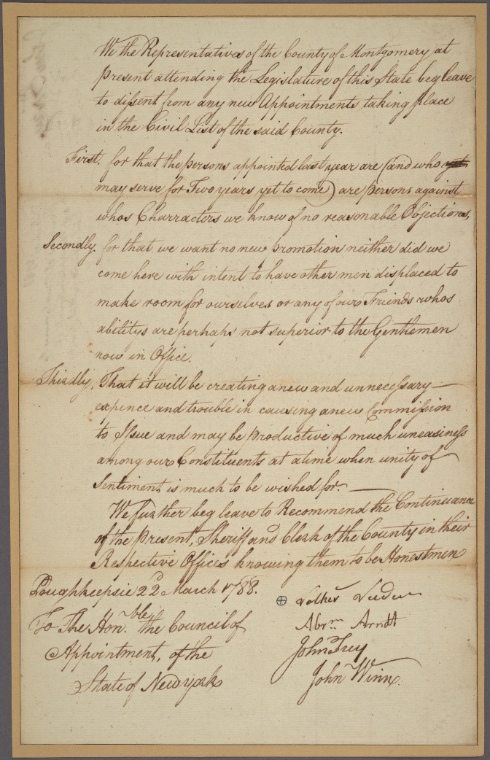 We the Representatives of the County of Montgomery at
present attending the Legislature of this State beg leave
to dissent from any new Appointments taking place
in the Civil List of the said County.
First. for that the persons appointed last year are (and who
may serve for Two years yet to come) are persons against
whos Charracters we know of no reasonable Objections,
Secondly. for that we want no new promotion neither did we
come here with intent to have other men displaced to
make room for ourselves or any of our Friends whos
abilitys are perhaps not superior to the Gentlemen
now in Office.
Thirdly, That it will be creating a new and unnecessary
expence and trouble in causing a new Commission
to Issue and may be Productive of much uneasiness
among our Constituents at a time when unity of
Sentiment is much to be wished for.
We further beg leave to Recommend the Continuance
of the Present, Sheriff and Clerk of the County in their
Respective Offices knowing them to be Honest men
Poughkeepsie 22d March 1788.
To The Honble. the Council of
Appointment, of the
State of New york
Abrm Arndt
John Frey
John Winn.